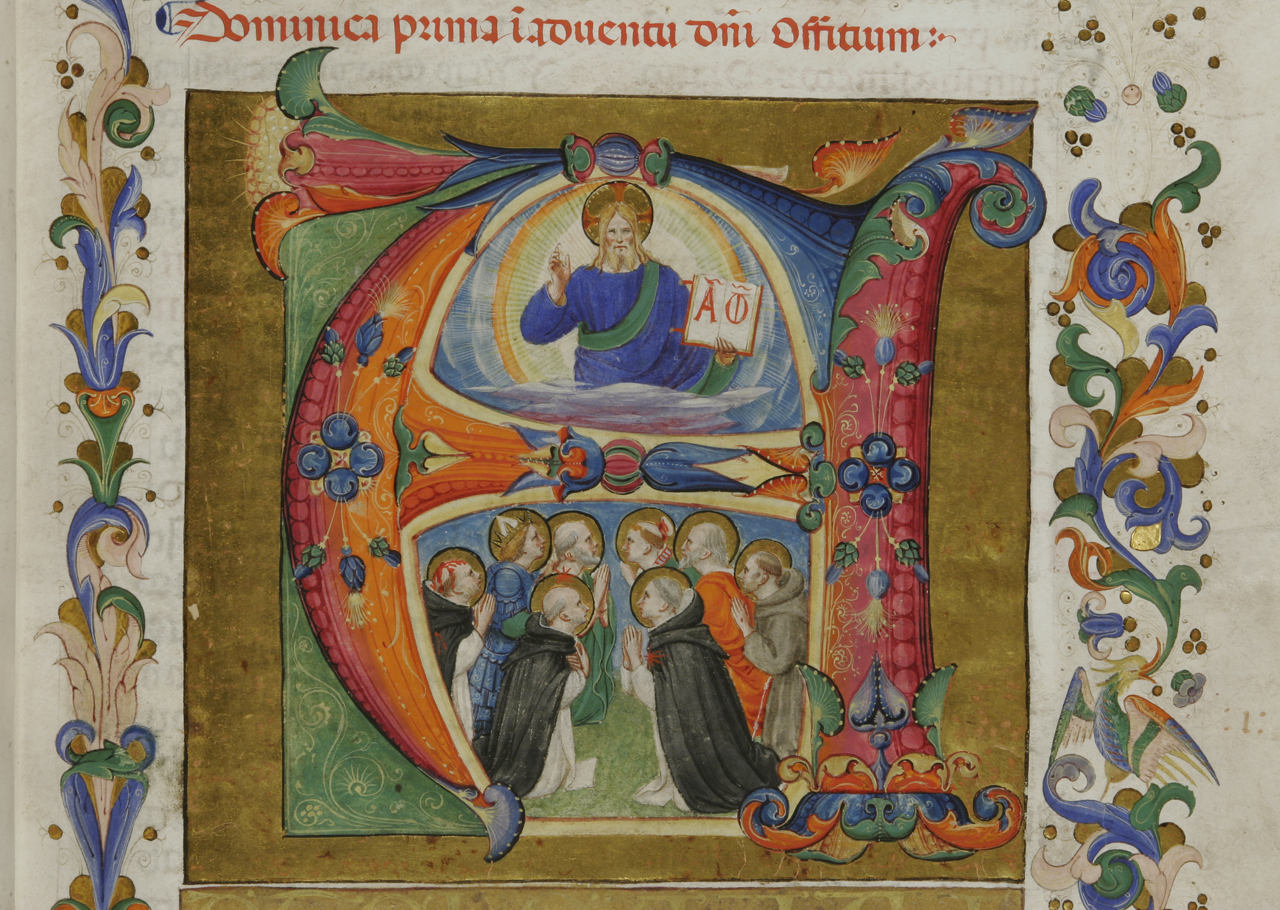 Dominica prima ī aduentu dn̄i Offitium:~
Ā ō